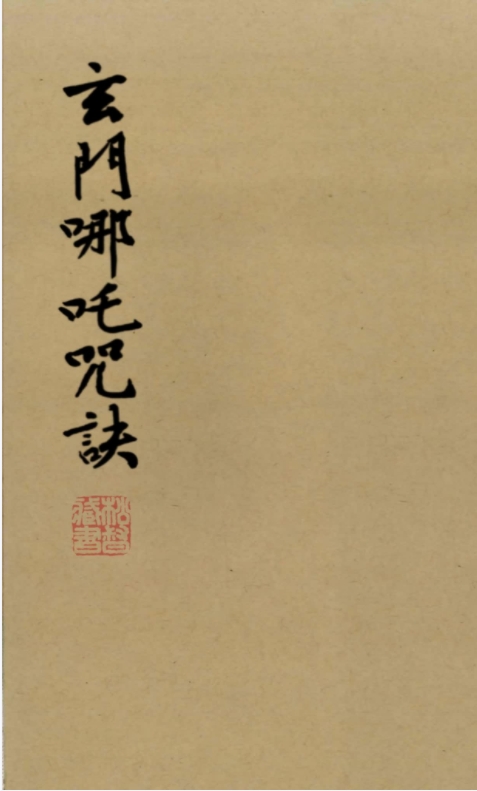 玄門哪吒咒訣